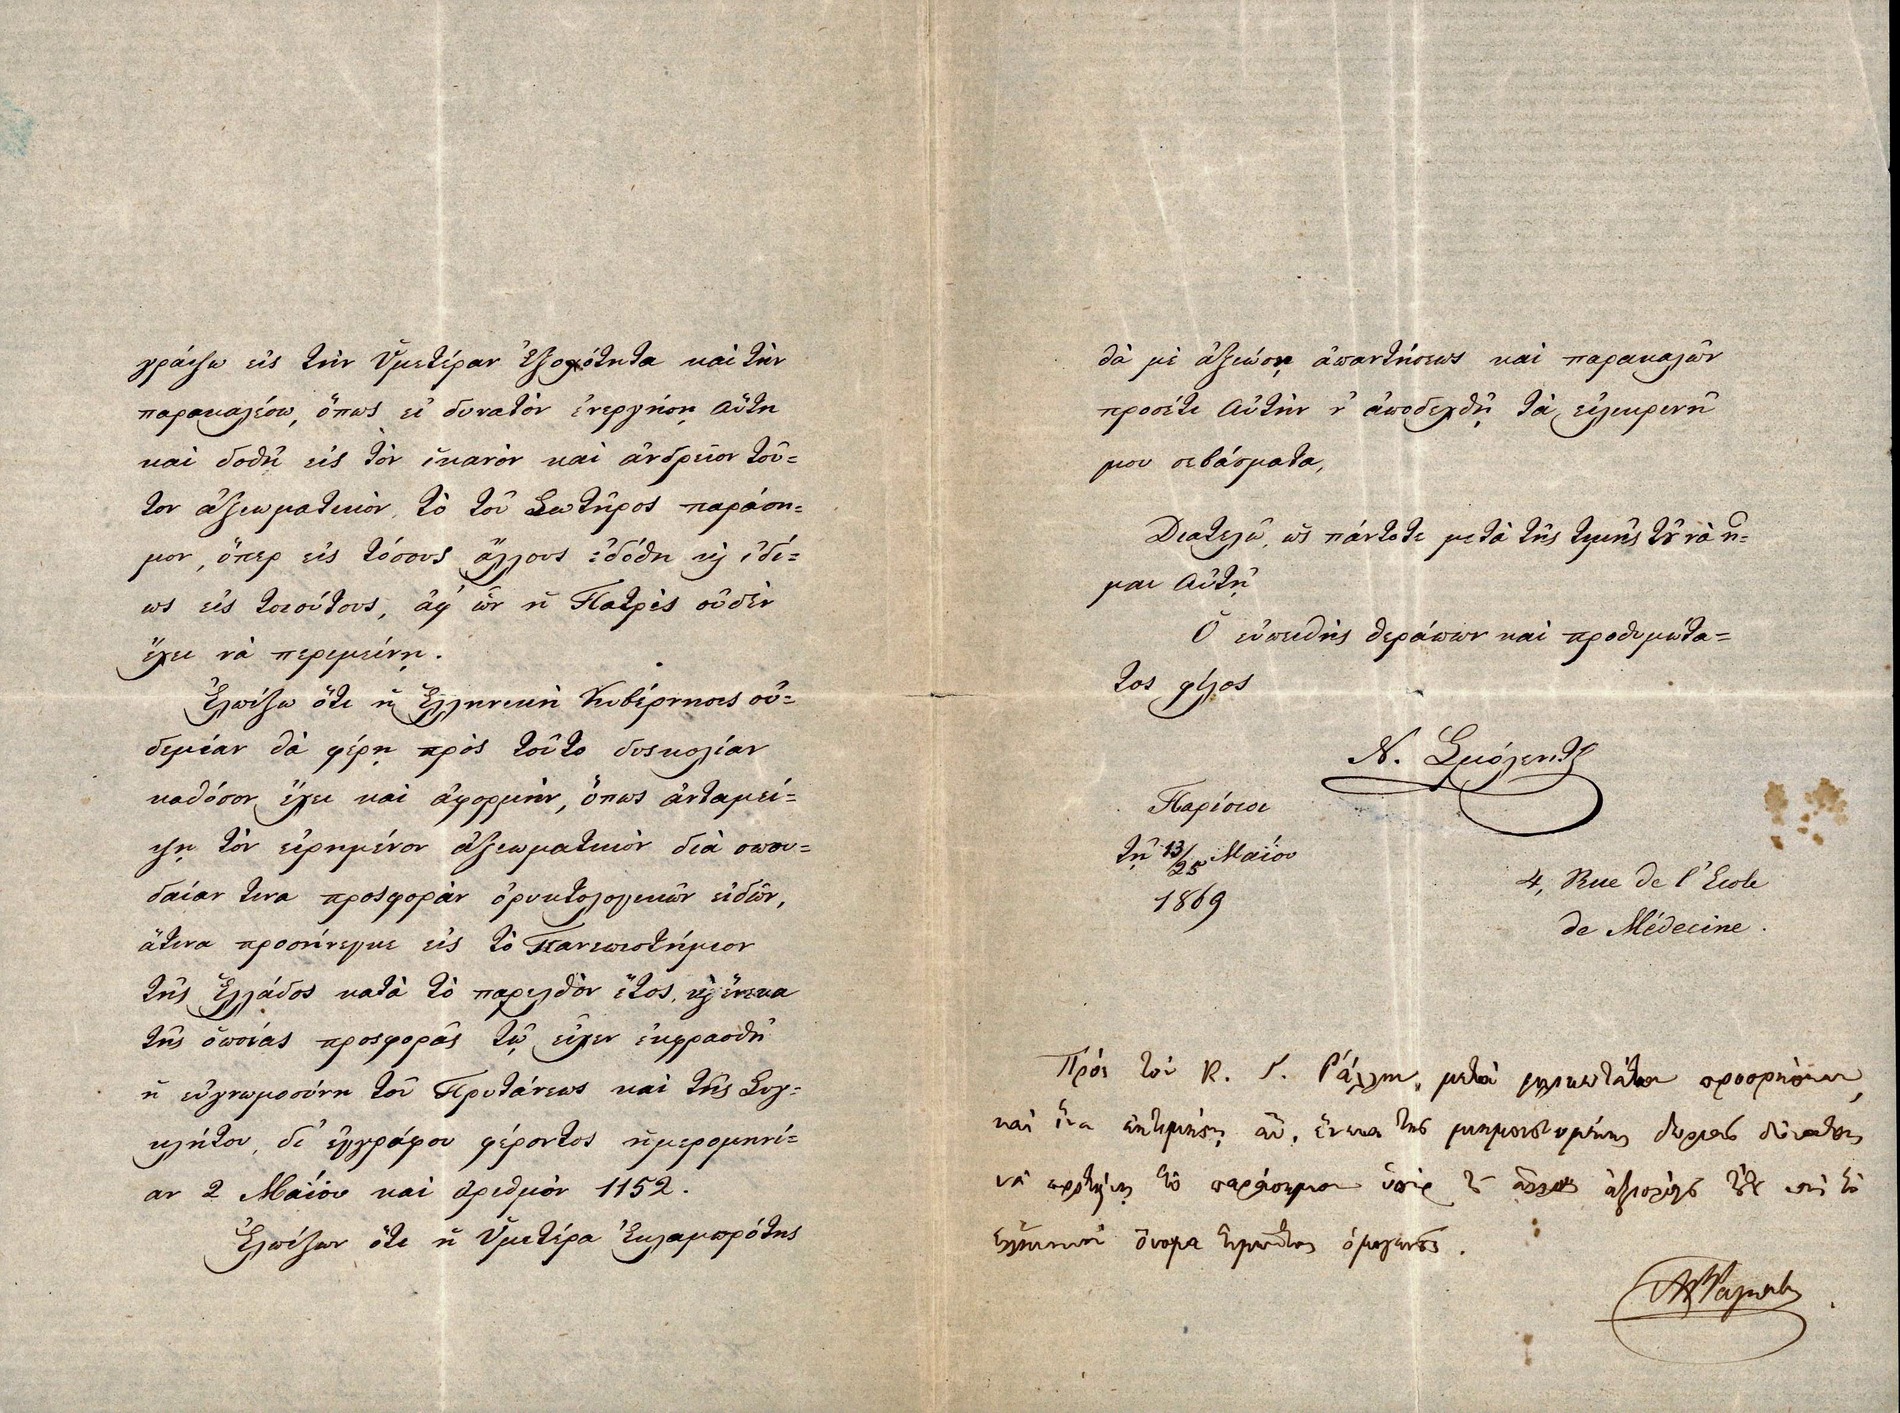 γράψω εἰς τὴν Ὑμετέραν Ἐξοχότητα καὶ τὴν
παρακαλέσω, ὅπως εἰ δυνατὸν ἐνεργήσῃ Αὕτη
καὶ δοθῇ εἰς τὸν ἱκανὸν καὶ ἀνδρεῖον τοῦ=
τον ἀξιωματικὸν τὸ τοῦ Σωτῆρος παράση=
μον, ὅπερ εἰς τόσους ἄλλους ἐδόθη κ̀ ἰδί=
ως εἰς τοιούτους, ἀφ' ὧν ἡ Πατρὶς οὐδὲν
ἔχει νὰ περιμείνῃ.
Ἐλπίζω ὅτι ἡ Ἑλληνικὴ Κυβέρνησις οὐ=
δεμίαν θὰ φέρῃ πρὸς τοῦτο δυσκολίαν
καθόσον ἔχει καὶ ἀφορμὴν, ὅπως ἀνταμεί=
ψῃ τὸν εἰρημένον ἀξιωματικὸν διὰ σπου=
δαίαν τινα προσφορὰν ὀρυκτολογικῶν εἰδῶν,
ἅτινα προσήνεγκε εἰς τὸ Πανεπιστήμιον
τῆς Ἑλλάδος κατὰ τὸ παρελθὸν ἔτος, κ̀ ἕνεκα
τῆς ὁποίας προσφορᾶς τῷ εἶχεν ἐκφρασθῆ
ἡ εὐγνωμοσύνη τοῦ Πρυτάνεως καὶ τῆς Συγ=
κλήτου δι' ἐγγράφου φέροντος ἡμερομηνί=
αν 2 Μαΐου καὶ ἀριθμὸν 1152.
Ἐλπίζων ὅτι ἡ Ὑμετέρα Ἐκλαμπρότης
θὰ μὲ ἀξιώσῃ ἀπαντήσεως καὶ παρακαλῶν
προσέτι Αὐτὴν ν' ἀποδεχθῇ τὰ εἰλικρινῆ
μου σεβάσματα,
Διατελῶ, ὡς πάντοτε μετὰ τῆς τιμῆς τοῦ νὰ ἦ=
μαι Αὐτῇ
Ὁ εὐπειθὴς θεράπων καὶ προθυμότα=
τος φίλος
Ν. Σμόλεντς
Παρίσιοι
τῇ 13/25 Μαΐου
1869
4, Rue de l'Ecole
de Médecine.
Πρὸς τὸν Κ. Γ. Ῥάλλην, μετὰ φιλικωτάτων προσρήσεων,
καὶ ἵνα ἐκτιμήσῃ ἂν, ἕνεκα τῆς μνημονευομένης δωρεᾶς δύναται
νὰ προτείνῃ τὸ παράσημον ὑπὲρ τοῦ ἄλλως ἀξιολόγου
ὄνομα τιμῶντος ὁμογενοῦς.